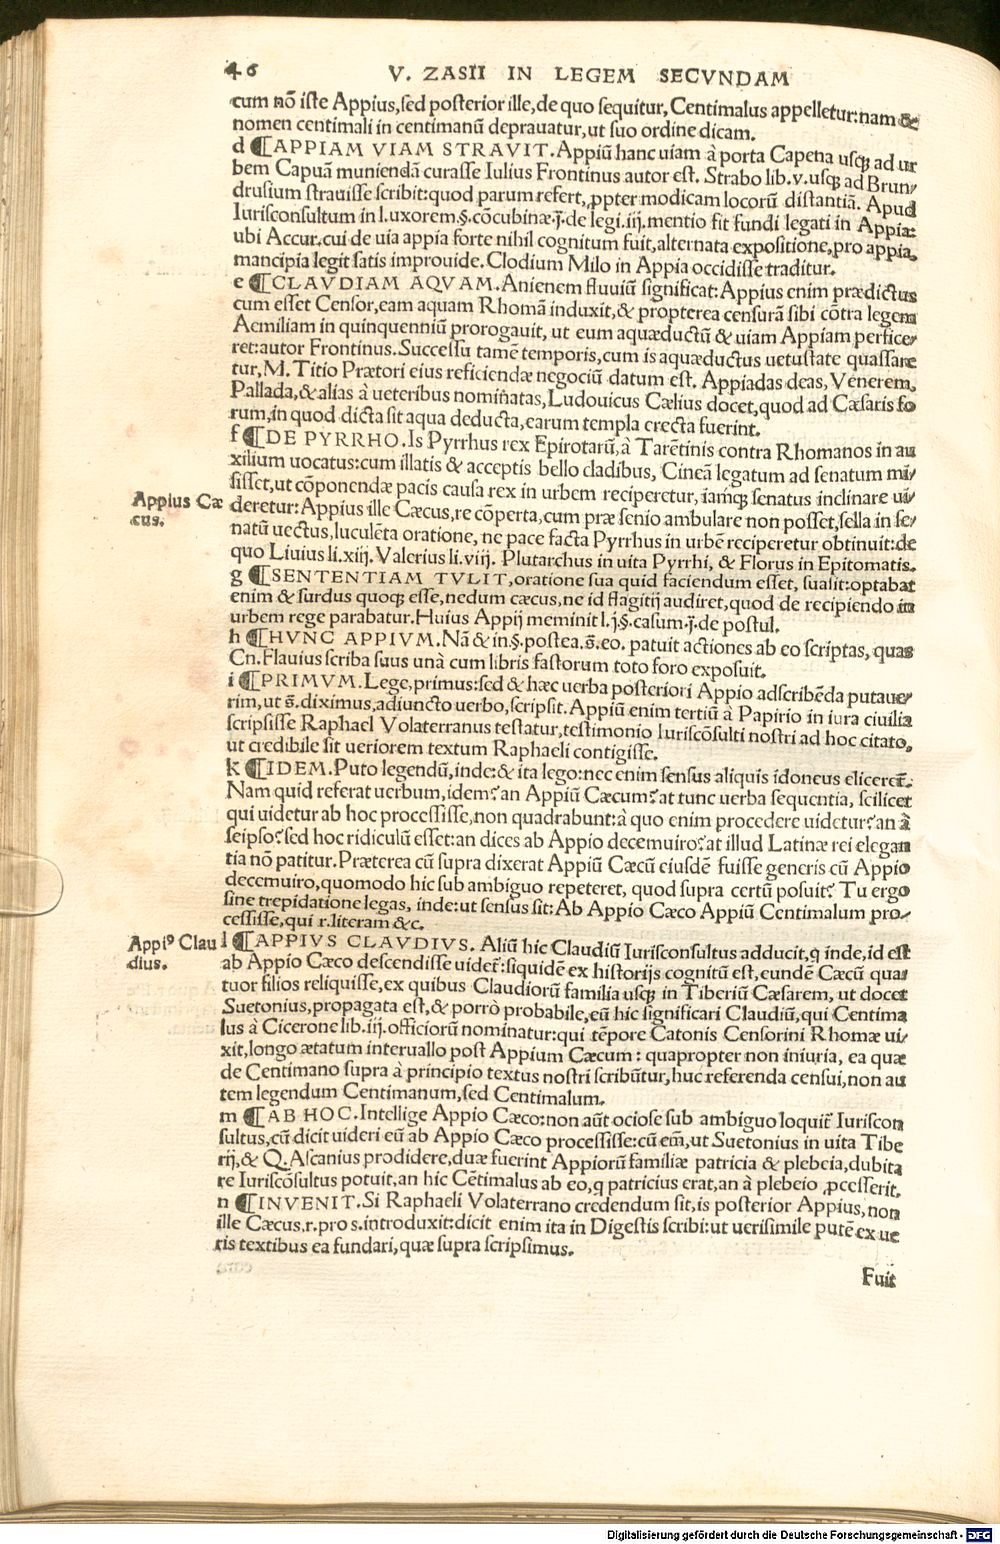 46 V. ZASII IN LEGEM SECVNDAM
cum nõ iste Appius,sed posterior ille,de quo sequitur, Centimalus appelletur:nam &
nomen centimali in centimanũ deprauatur,ut suo ordine dicam.
d ¶APPIAM VIAM STRAVIT.Appiũ hanc uiam à porta Capena usqꝫ ad ur
bem Capuã muniendã curasse Iulius Frontinus autor est. Strabo lib.v.usqꝫ ad Brun/
drusium strauisse scribit:quod parum refert,ꝓpter modicam locorũ distantiã. Apud
Iurisconsultum in l.uxorem.§.cõcubinæ.j̄.de legi.iij.mentio fit fundi legati in Appia:
ubi Accur.cui de uia appia forte nihil cognitum fuit,alternata expositione,pro appia,
mancipia legit satis improuide.Clodium Milo in Appia occidisse traditur.
e ¶CLAVDIAM AQVAM.Anienem fluuiũ significat:Appius enim prædictus
cum esset Censor,eam aquam Rhomã induxit,& propterea censurã sibi cõtra legem
Aemiliam in quinquenniũ prorogauit, ut eum aquæductũ & uiam Appiam perfice/
ret:autor Frontinus.Successu tamẽ temporis,cum is aquæductus uetustate quassare
tur,M.Titio Prætori eius reficiendæ negociũ datum est. Appiadas deas, Venerem,
Pallada,& alias à ueteribus nominatas,Ludouicus Cælius docet,quod ad Cæsaris fo
rum,in quod dicta sit aqua deducta,earum templa erecta fuerint.
f ¶DE PYRRHO.Is Pyrrhus rex Epirotarũ,à Tarẽtinis contra Rhomanos in au
xilium uocatus:cum illatis & acceptis bello cladibus, Cineã legatum ad senatum mi/
sisset,ut cõponendæ pacis causa rex in urbem reciperetur, iamqꝫ senatus inclinare ui/
Appius Cæ
cus.
deretur:Appius ille Cæcus,re cõperta,cum præ senio ambulare non posset,sella in se/
natũ uectus,luculẽta oratione, ne pace facta Pyrrhus in urbẽ reciperetur obtinuit:de
quo Liuius li.xiij.Valerius li.viij. Plutarchus in uita Pyrrhi, & Florus in Epitomatis.
g ¶SENTENTIAM TVLIT,oratione sua quid faciendum esset, suasit:optabat
enim & surdus quoqꝫ esse,nedum cæcus,ne id flagitij audiret,quod de recipiendo in
urbem rege parabatur.Huius Appij meminit l.j.§.casum.j̄.de postul.
h ¶HVNC APPIVM.Nã & in.§.postea.s̄.eo. patuit actiones ab eo scriptas, quas
Cn.Flauius scriba suus unà cum libris fastorum toto foro exposuit.
i ¶PRIMVM.Lege,primus:sed & hæc uerba posteriori Appio adscribẽda putaue/
rim,ut s̄.diximus,adiuncto uerbo,scripsit.Appiũ enim tertiũ à Papirio in iura ciuilia
scripsisse Raphael Volaterranus testatur,testimonio Iuriscõsulti nostri ad hoc citato,
ut credibile sit ueriorem textum Raphaeli contigisse.
k ¶IDEM.Puto legendũ,inde:& ita lego:nec enim sensus aliquis idoneus elicereť.
Nam quid referat uerbum,idem? an Appiũ Cæcum? at tunc uerba sequentia, scilicet
qui uidetur ab hoc processisse,non quadrabunt:à quo enim procedere uidetur? an à
seipso? sed hoc ridiculũ esset:an dices ab Appio decemuiro? at illud Latinæ rei elegan
tia nõ patitur.Præterea cũ supra dixerat Appiũ Cæcũ eiusdẽ fuisse generis cũ Appio
decemuiro,quomodo hic sub ambiguo repeteret, quod supra certũ posuit? Tu ergo
sine trepidatione legas, inde:ut sensus sit:Ab Appio Cæco Appiũ Centimalum pro/
cessisse,qui r.literam &c.
Appiꝰ Clau
dius.
l ¶APPIVS CLAVDIVS. Aliũ hic Claudiũ Iurisconsultus adducit,q̨ inde,id est
ab Appio Cæco descendisse uideť:siquidẽ ex historijs cognitũ est,eundẽ Cæcũ qua
tuor filios reliquisse,ex quibus Claudiorũ familia usqꝫ in Tiberiũ Cæsarem, ut docet
Suetonius,propagata est,& porrò probabile,eũ hic significari Claudiũ,qui Centima
lus à Cicerone lib.iij.officiorũ nominatur:qui tẽpore Catonis Censorini Rhomæ ui/
xit,longo ætatum interuallo post Appium Cæcum: quapropter non iniuria, ea quæ
de Centimano supra à principio textus nostri scribũtur,huc referenda censui,non au
tem legendum Centimanum,sed Centimalum.
m ¶AB HOC.Intellige Appio Cæco:non aũt ociose sub ambiguo loquiť Iuriscon
sultus,cũ dicit uideri eũ ab Appio Cæco processisse:cũ em̃,ut Suetonius in uita Tibe
rij,& Q.Ascanius prodidere,duæ fuerint Appiorũ familiæ patricia & plebeia,dubita
re Iuriscõsultus potuit,an hic Cẽtimalus ab eo,q̨ patricius erat,an à plebeio ꝓcesserit.
n ¶INVENIT.Si Raphaeli Volaterrano credendum sit,is posterior Appius,non
ille Cæcus.r.pro s.introduxit:dicit enim ita in Digestis scribi:ut uerisimile putẽ ex ue
ris textibus ea fundari,quæ supra scripsimus.
Fuit
Digitalisierung gefördert durch die Deutsche Forschungsgemeinschaft - DFG